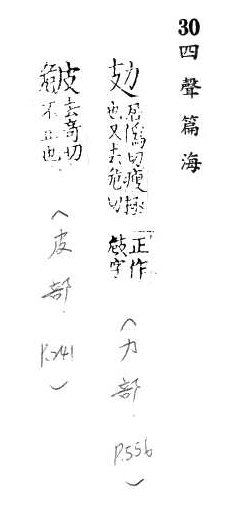 30四聲篇海
攰居僞切瘦極
也又去危切
正作
字
(力部.P.556)
去奇切
不正也
(皮部.P.241)